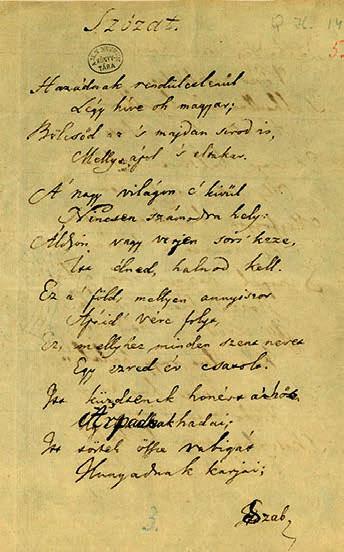 Szózat.
Hazádnak rendületlenűl
Légy híve oh magyar;
Bölcsőd ez 's majdan sirod is,
Melly ápol 's eltakar.
A' nagy világon é kivűl
Nincsen számodra hely:
Áldjon vagy verjen sors keze,
Itt élned, halnod kell.
Ez a' föld, mellyen annyiszor
Apáid' vére folyt,
Ez, mellyhez minden szent nevet
Egy ezred év csatolt.
Itt küzdtenek honért a' hős
Árpádnak hadai;
Itt törtek össze rabigát
Hunyadnak karjai;
Szab
3.